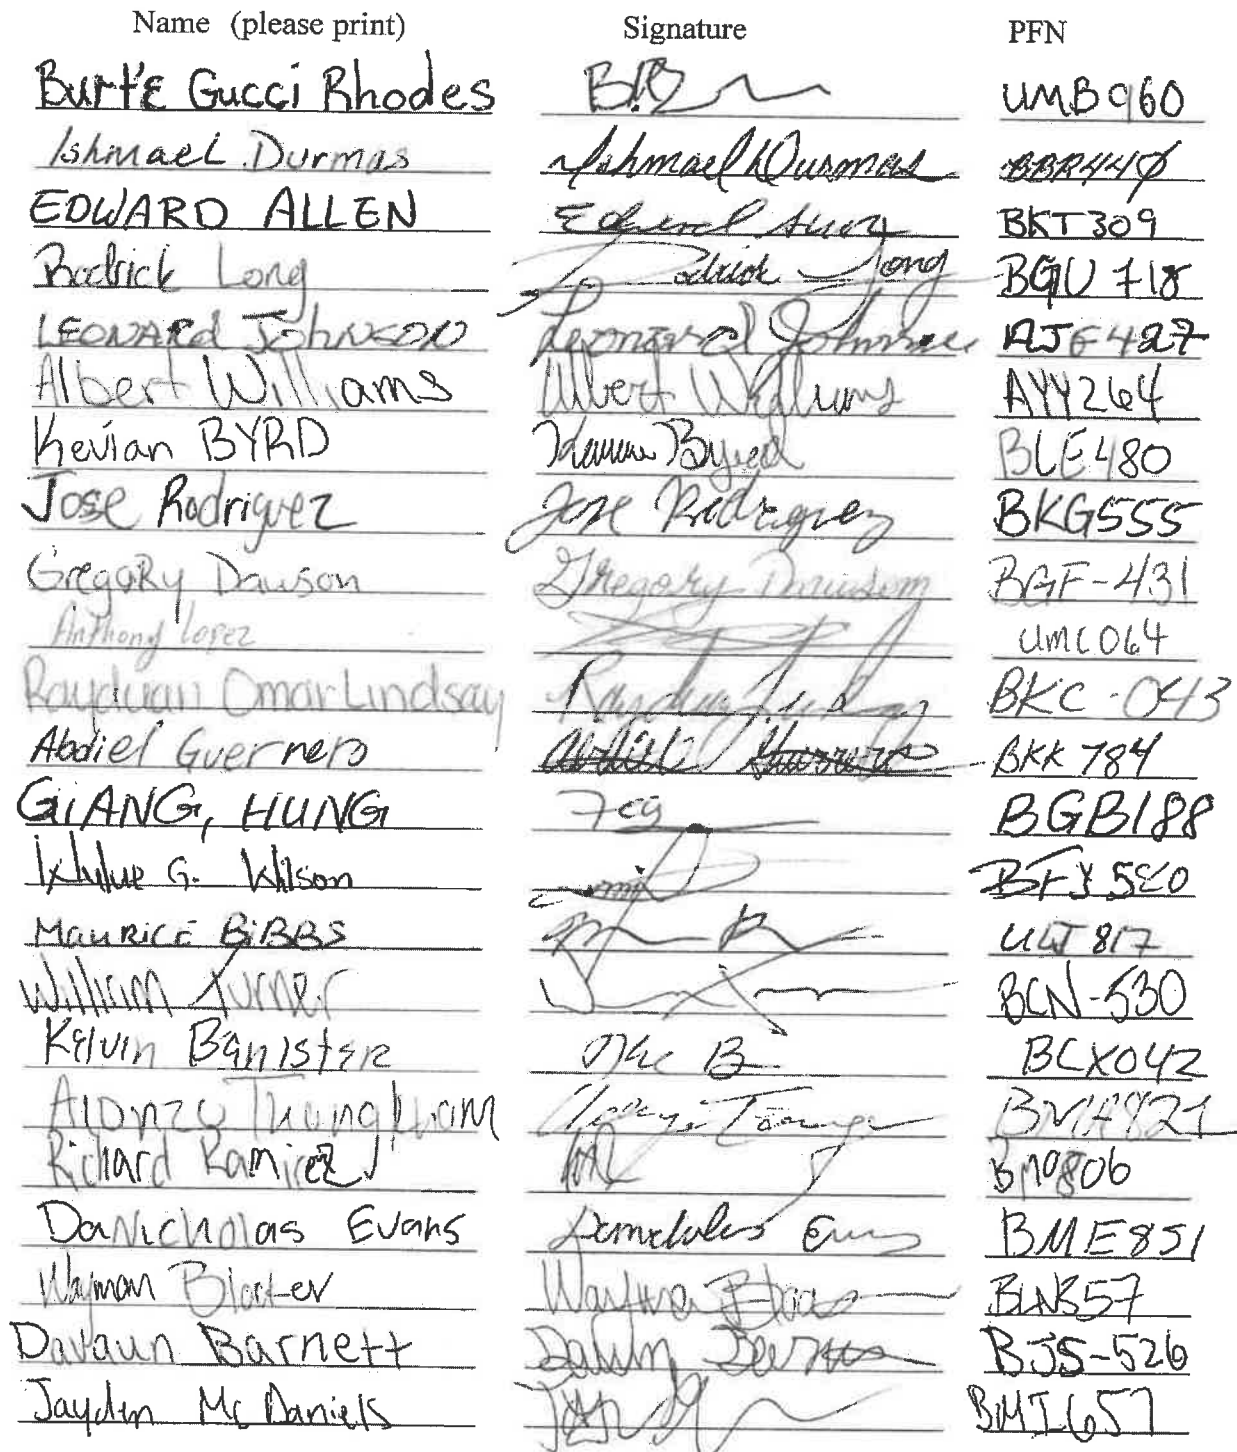 Name (please print) Signature PFN
Burt'E Gucci Rhodes UMB960
Ishmael Durmas Ishmael Durmas BBR440
EDWARD ALLEN Edward Allen BKT309
Rodrick Long Rodrick Long BGU718
LEONARD JOHNSON Leonard Johnson AJE427
Albert Williams Albert Williams AYY264
Kevian BYRD Kevian Byrd BLE480
Jose Rodriguez Jose Rodriguez BKG555
GregoRy Dawson Gregory Dawson BGF-431
Anthony Lopez UMC064
Rayduan Omar Lindsay BKC-043
Abdiel Guerrero Abdiel Guerrero BKK784
GiANG, HUNG BGB188
G. Wilson
MAURICE BiBBS 817
William Turner BCN-530
Kelvin Banister B BCX042
Alonzo BMA821
Richard Ramirez 806
DaNicholas Evans BME851
Wayman
Davaun Barnett BJS-526
Jayden McDaniels BMI657